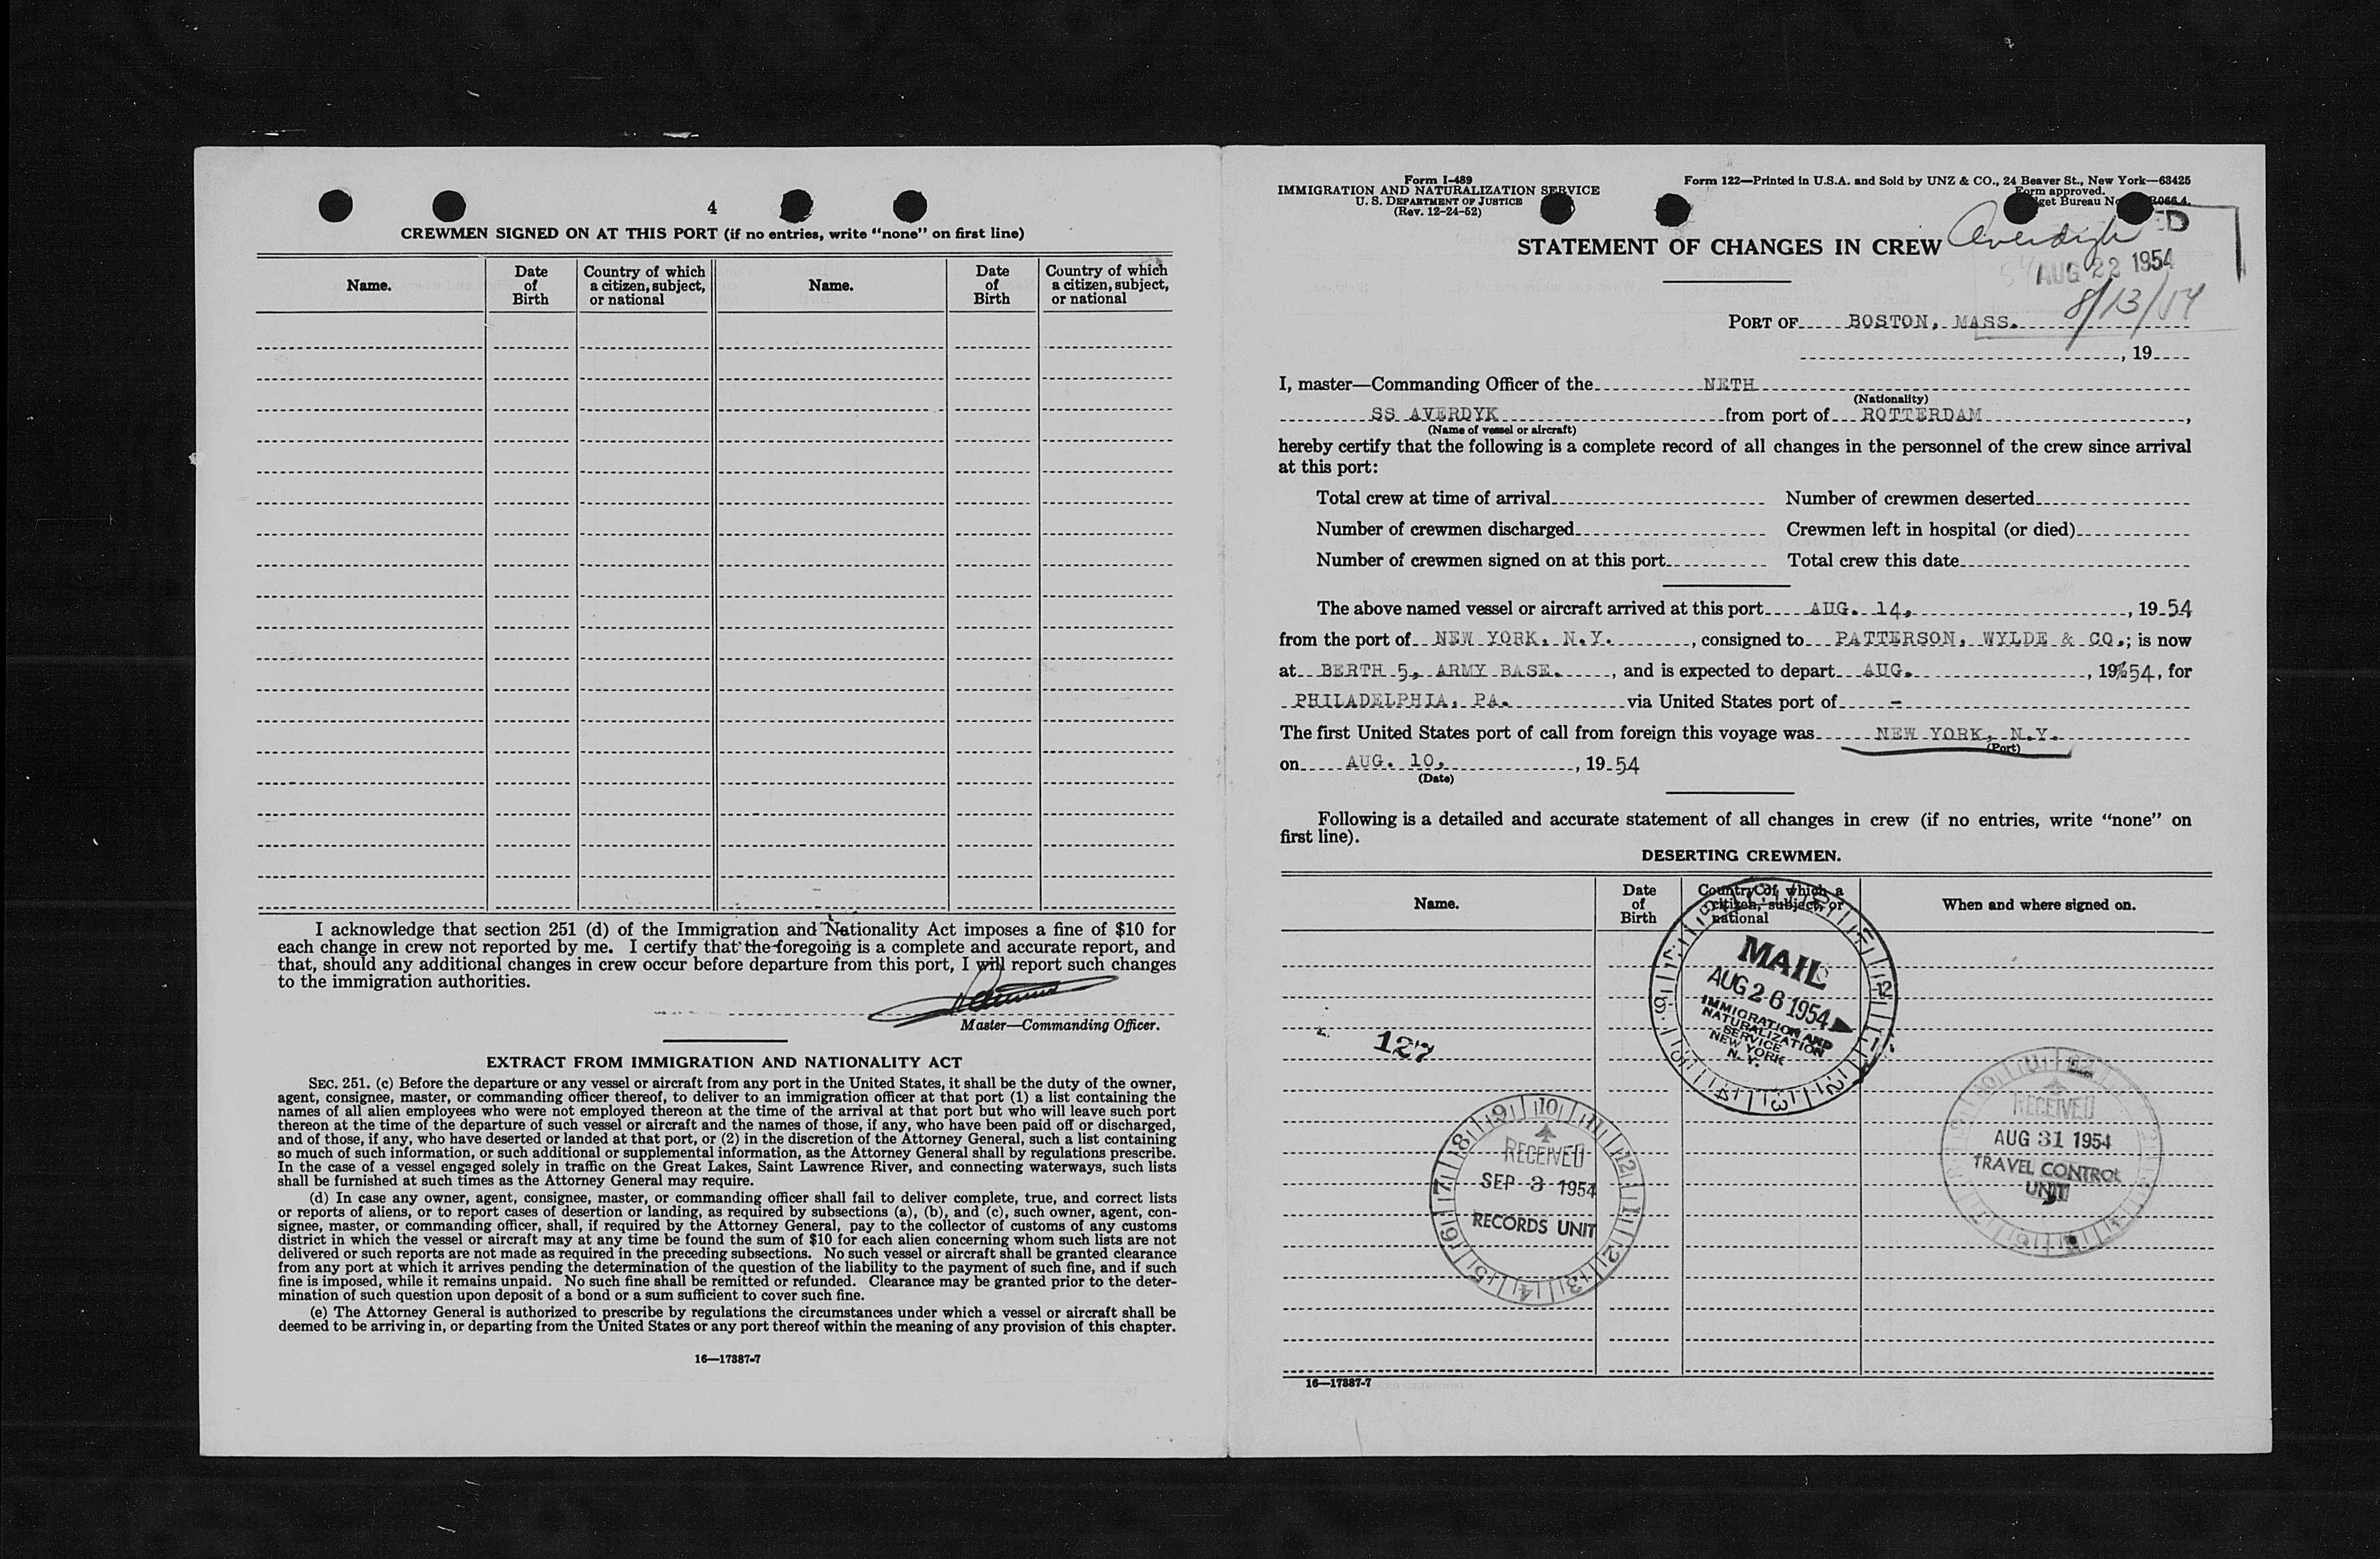 4
CREWMEN SIGNED ON AT THIS PORT (if no entries, write "none" on first line)
Name. Date of Birth Country of which a citizen, subject, or national Name. Date of Birth Country of which a citizen, subject, or national
I acknowledge that section 251 (d) of the Immigration and Nationality Act imposes a fine of $10 for
each change in crew not reported by me. I certify that the foregoing is a complete and accurate report, and
that, should any additional changes in crew occur before departure from this port, I will report such changes
to the immigration authorities.
Master—Commanding Officer.
EXTRACT FROM IMMIGRATION AND NATIONALITY ACT
SEC. 251. (c) Before the departure or any vessel or aircraft from any port in the United States, it shall be the duty of the owner,
agent, consignee, master, or commanding officer thereof, to deliver to an immigration officer at that port (1) a list containing the
names of all alien employees who were not employed thereon at the time of the arrival at that port but who will leave such port
thereon at the time of the departure of such vessel or aircraft and the names of those, if any, who have been paid off or discharged,
and of those, if any, who have deserted or landed at that port, or (2) in the discretion of the Attorney General, such a list containing
so much of such information, or such additional or supplemental information, as the Attorney General shall by regulations prescribe.
In the case of a vessel engaged solely in traffic on the Great Lakes, Saint Lawrence River, and connecting waterways, such lists
shall be furnished at such times as the Attorney General may require.
(d) In case any owner, agent, consignee, master, or commanding officer shall fail to deliver complete, true, and correct lists
or reports of aliens, or to report cases of desertion or landing, as required by subsections (a), (b), and (c), such owner, agent, con-
signee, master, or commanding officer, shall, if required by the Attorney General, pay to the collector of customs of any customs
district in which the vessel or aircraft may at any time be found the sum of $10 for each alien concerning whom such lists are not
delivered or such reports are not made as required in the preceding subsections. No such vessel or aircraft shall be granted clearance
from any port at which it arrives pending the determination of the question of the liability to the payment of such fine, and if such
fine is imposed, while it remains unpaid. No such fine shall be remitted or refunded. Clearance may be granted prior to the deter-
mination of such question upon deposit of a bond or a sum sufficient to cover such fine.
(e) The Attorney General is authorized to prescribe by regulations the circumstances under which a vessel or aircraft shall be
deemed to be arriving in, or departing from the United States or any port thereof within the meaning of any provision of this chapter.
16—17887-7
Form I-489
IMMIGRATION AND NATURALIZATION SERVICE
U. S. DEPARTMENT OF JUSTICE
(Rev. 12-24-52)
Form 122—Printed in U.S.A. and Sold by UNZ & CO., 24 Beaver St., New York—63425
Form approved.
get Bureau No
STATEMENT OF CHANGES IN CREW
Averdijk
ED
AUG 22 1954
8/13/54
PORT OF BOSTON, MASS.
, 19
I, master—Commanding Officer of the NETH
(Nationality)
SS AVERDYK from port of ROTTERDAM ,
(Name of vessel or aircraft)
hereby certify that the following is a complete record of all changes in the personnel of the crew since arrival
at this port:
Total crew at time of arrival Number of crewmen deserted
Number of crewmen discharged Crewmen left in hospital (or died)
Number of crewmen signed on at this port Total crew this date
The above named vessel or aircraft arrived at this port AUG. 14, , 19 54
from the port of NEW YORK, N.Y. , consigned to PATTERSON, WYLDE & CO.; is now
at BERTH 5, ARMY BASE. , and is expected to depart AUG. , 19 54, for
PHILADELPHIA, PA. via United States port of -
The first United States port of call from foreign this voyage was NEW YORK, N.Y.
(Port)
on AUG. 10, , 19 54
(Date)
Following is a detailed and accurate statement of all changes in crew (if no entries, write "none" on
first line).
DESERTING CREWMEN.
Name. Date of Birth Country of which a citizen, subject, or national When and where signed on.
MAIL
AUG 26 1954
IMMIGRATION AND
NATURALIZATION
SERVICE
NEW YORK
N. Y.
127
RECEIVED
SEP 3 1954
RECORDS UNIT
RECEIVED
AUG 31 1954
TRAVEL CONTROL
UNIT
16—17887-7